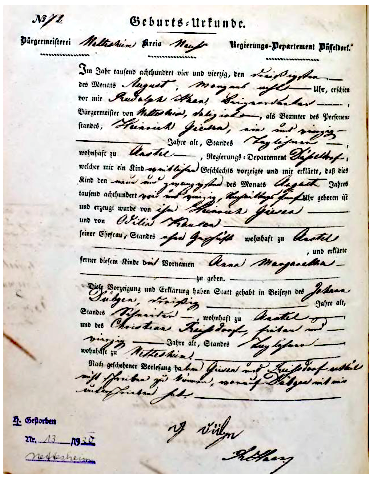 No 72.
Geburts-Urkunde.
Bürgermeisterei Nettesheim Kreis Neuß Regierungs-Departement Düsseldorf.
Im Jahr tausend achthundert vier und vierzig, den dreißigsten
des Monats August, Morgens acht Uhr, erschien
vor mir Rudolph
Bürgermeister von Nettesheim, als Beamter des Personen-
standes, Heinrich Giesen, ein und vierzig
Jahre alt, Standes Taglöhner,
wohnhaft zu Anstel, Regierungs-Departement Düsseldorf,
welcher mir ein Kind weiblichen Geschlechts vorzeigte und mir erklärte, daß dies
Kind den neun und zwanzigsten des Monats August Jahres
tausend achthundert vier und vierzig, Uhr geboren ist
und erzeugt wurde von ihm, Heinrich Giesen
und von
seiner Ehefrau, Standes ohne Geschäft wohnhaft zu Anstel
, und erklärte
ferner diesem Kinde die Vornamen Anna Margaretha
zu geben.
Diese Vorzeigung und Erklärung haben Statt gehabt in Beiseyn des Johann
Dülgen, dreißig Jahre alt,
Standes, wohnhaft zu Anstel
und des Christian Reißdorf, sieben und
vierzig Jahre alt, Standes Taglöhner
wohnhaft zu Nettesheim
Nach geschehener Vorlesung haben Giesen und Reißdorf erklärt
nicht schreiben zu können, worauf Dülgen mit mir
unterschrieben hat.
H. Gestorben
Nr. 13 /19
Nettesheim